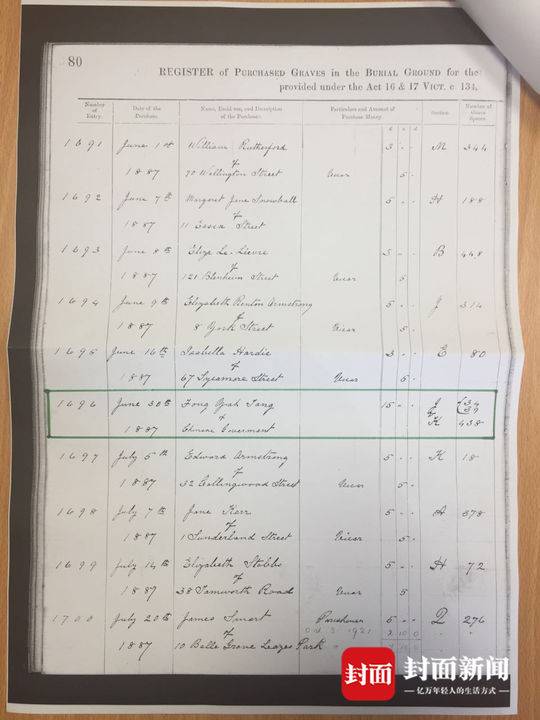 80
REGISTER of PURCHASED GRAVES in the BURIAL GROUND for the
provided under the Act 16 & 17 VICT. c 134,
Number of Entry. Date of the Purchase. Name, Residence, and Description of the Purchaser. Particulars and Amount of Purchase Money. Section. Number of Grave Space.
£ s d
1691 June 1st William Rutherford 3 - - M 344
1887 of 70 Wellington Street Vicar 5 -
1692 June 7th Margaret Jane Snowball 5 - - H 188
1887 of 11 Essex Street
1693 June 8th Eliza Le-Lievre 3 - - B 448
1887 of 121 Blenheim Street Vicar 5
1694 June 9th Elizabeth Renton Armstrong 5 - - J 314
1887 of 8 York Street Vicar 5 -
1695 June 16th Isabella Hardie 3 - - E 80
1887 of 67 Sycamore Street Vicar 5 -
1696 June 30th Fong Yuah Tang 15 - - J 34
& 39
1887 of Chinese Goverment K 438
1697 July 5th Edward Armstrong 5 - - K 18
1887 of 32 Collingwood Street Vicar 5 -
1698 July 7th Jane Kerr 5 - - A 378
1887 of 1 Sunderland Street Vicar 5
1699 July 14th Elizabeth Stobbs 5 - - H 72
1887 of 38 Tamworth Road Vicar 5
1700 July 20th James Smart Parishoner 5 - - Q 276
1921 2 10 0
1887 of 10 Belle Grove Leazes Park
封面 封面新闻
亿万年轻人的生活方式